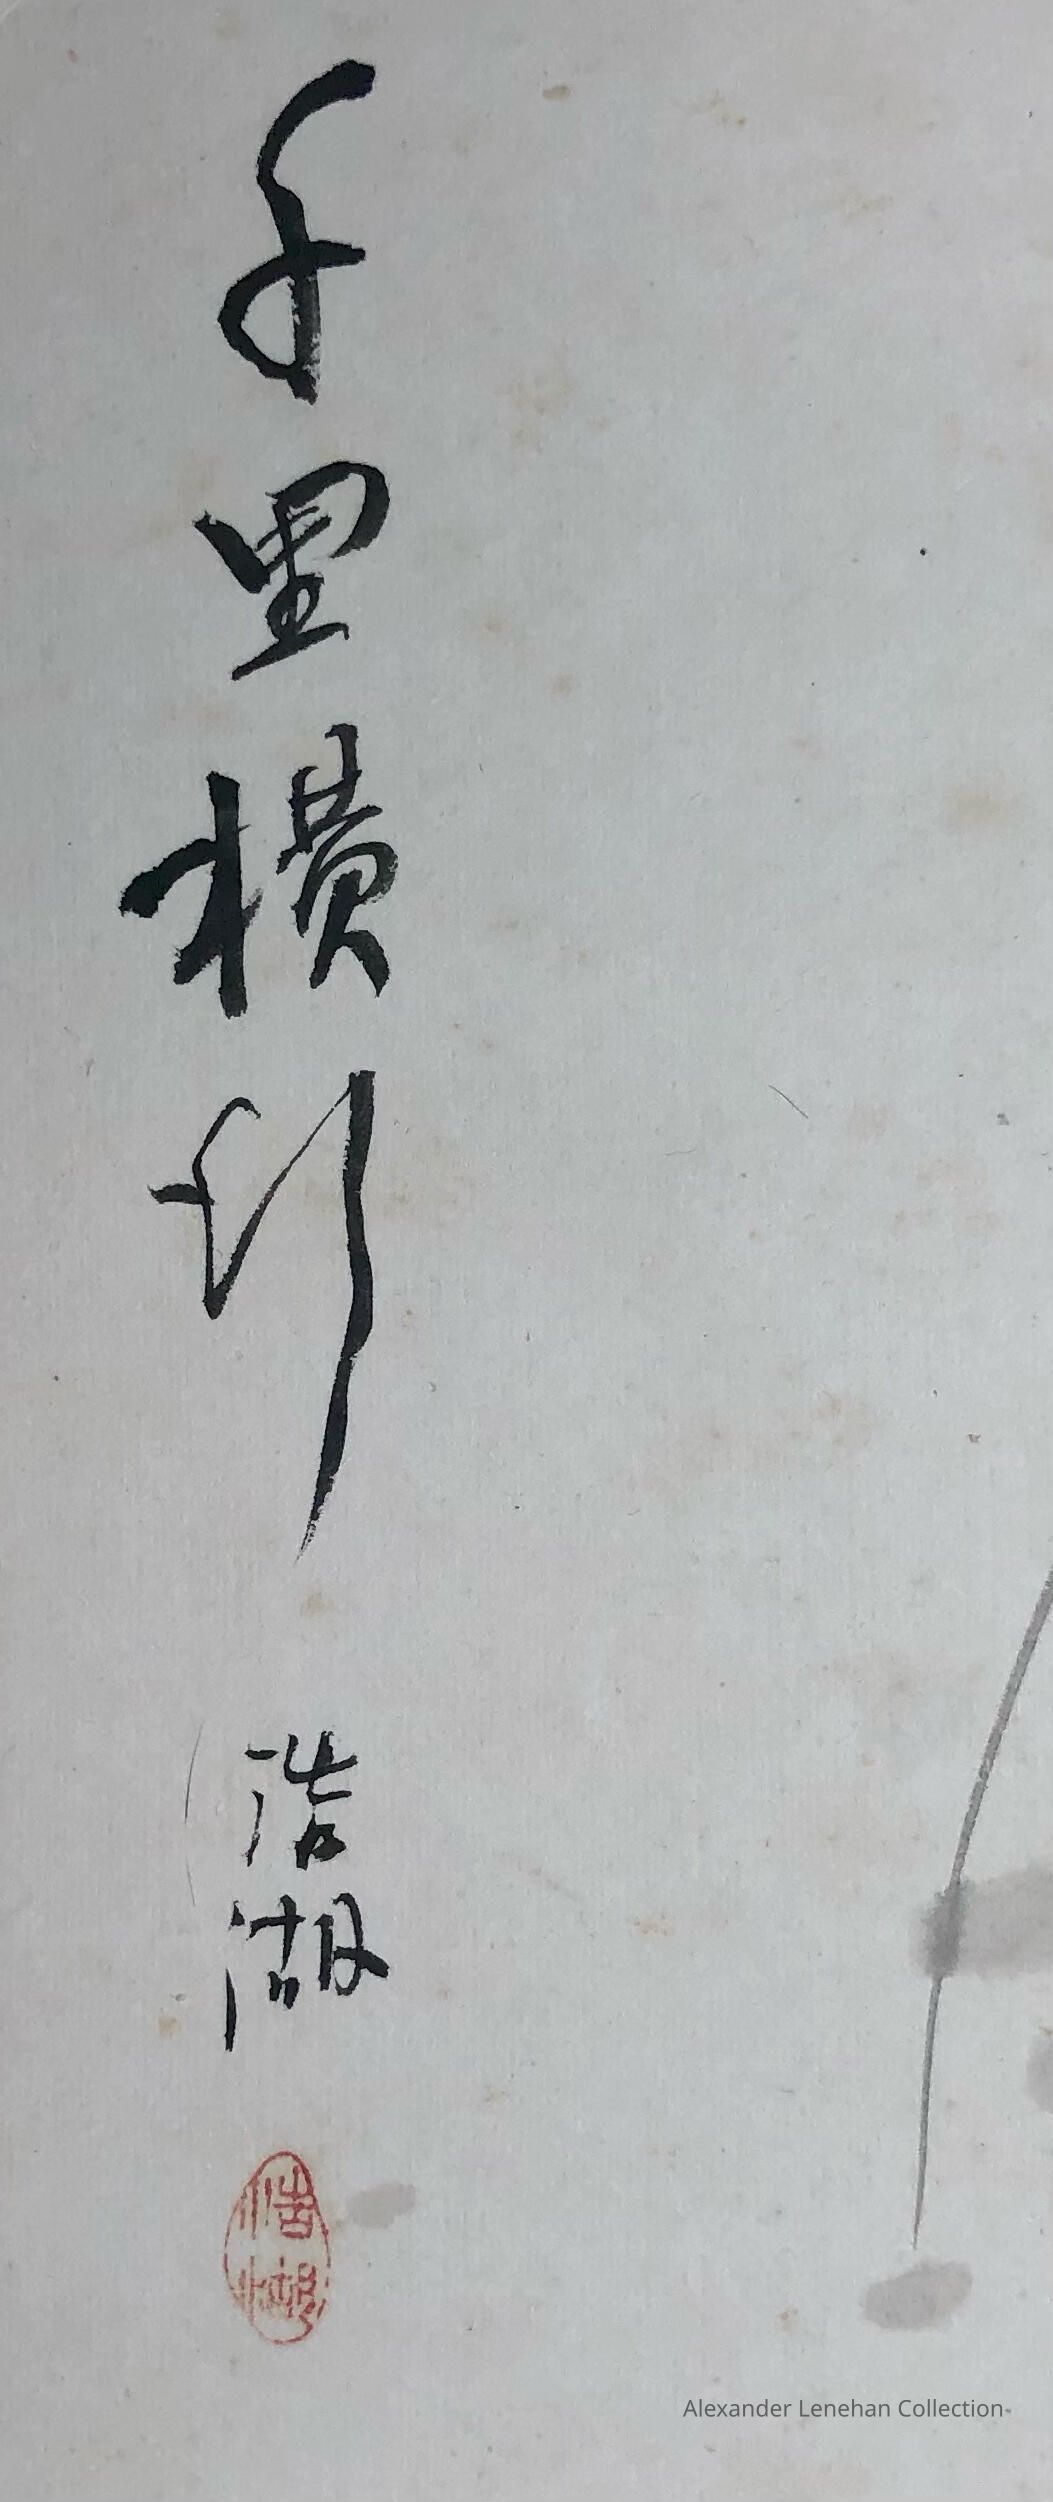 千里横行
浩湖
浩湖
Alexander Lenehan Collection